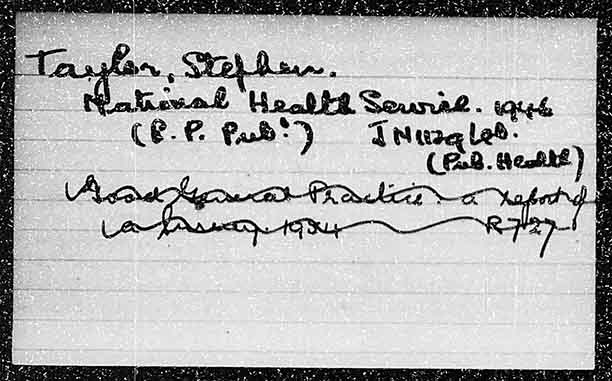 Taylor, Stephen.
National Health Service. 1946
(B.P. Pub.)
(Pub. Health)
Good General Practice. a report of
a Survey. 1954 R727